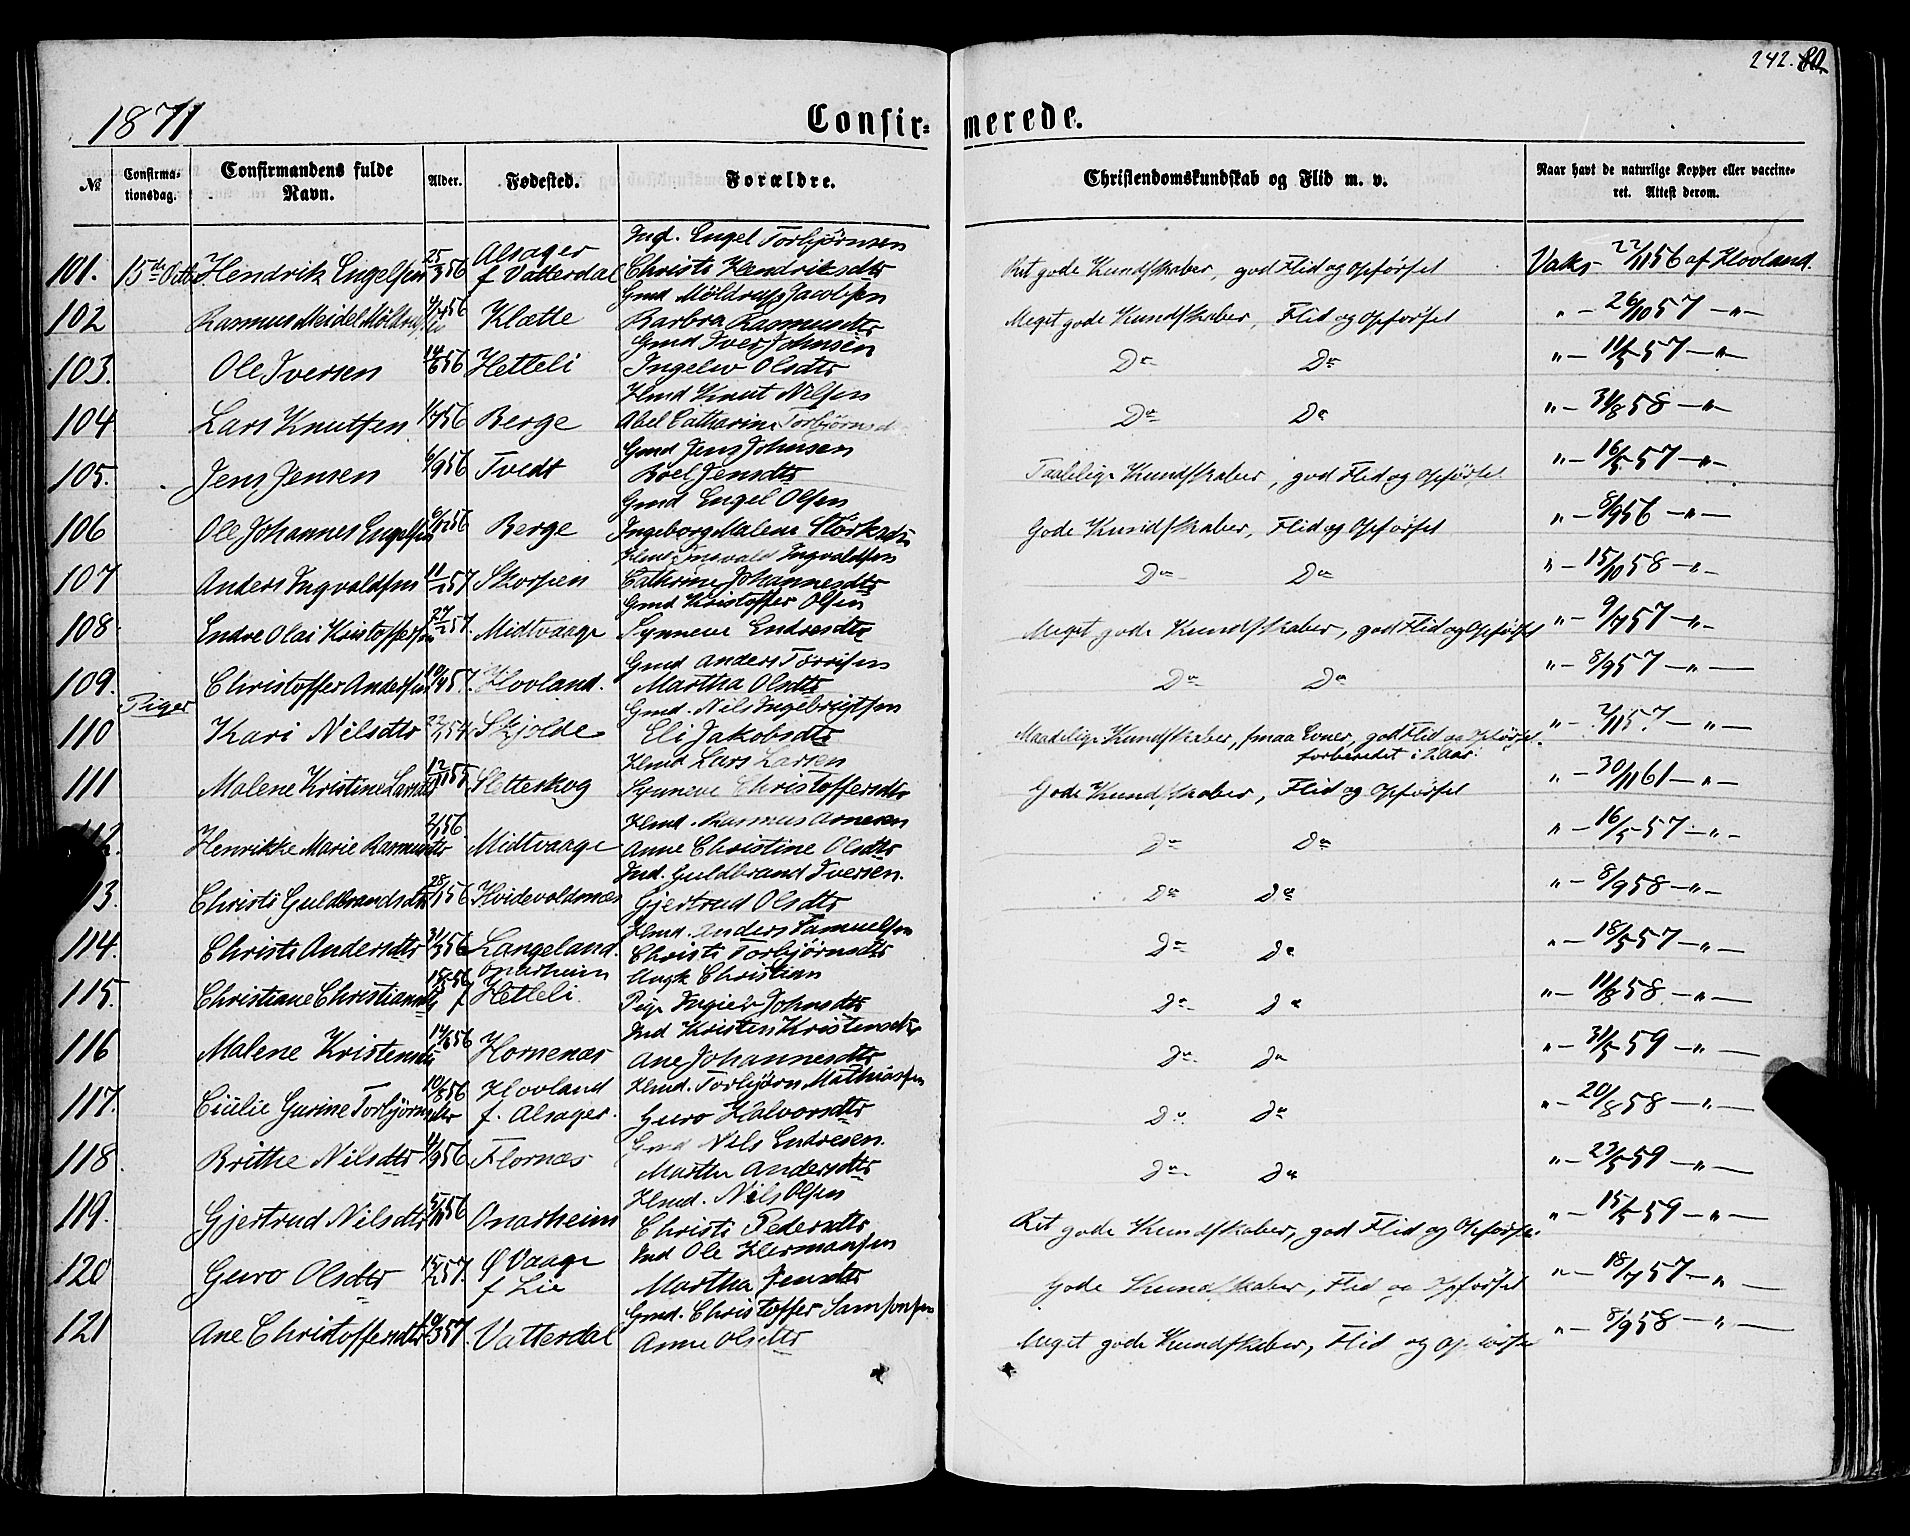 242. 80
1871
Confir=merede.
№ Confirmationsdag. Confirmandens fulde Navn. Alder. Fødested. Forældre. Christendomskundskab og Flid m. v. Naar havt de naturlige Kopper eller vaccineret. Attest derom.
101. 15de Octb Hendrik Engelsen 25/3 56 Alsager f Vatterdal Ind. Engel Torbjørnsen Christi Hendriksdtr Ret gode Kundskaber, god Flid og Opførsel Vaks 22/11 56 af Hovland.
102 Rasmus Meidel Møldrup Klætte Gmd Møldrup Jacobsen Barbra Rasmusdtr Meget gode Kundskaber, Flid og Opførsel " — 26/10 57 — " —
103. Ole Iversen 14/6 56 Hetteli Gmd Iver Johnsen Ingelev Olsdtr Do Do " — 11/5 57 — " —
104 Lars Knutsen 1/7 56 Berge Hmd Knut Nilsen Abel Catharina Torbjørnsd Do Do " — 31/8 58 — " —
105. Jens Jensen 6/9 56 Tvedt Gmd Jens Johnsen Boel Jensdtr Taalelige Kundskaber, god Flid og Opførsel. " — 16/5 57 — " —
106 Ole Johannes Engelsen 6/12 56 Berge Gmd Engel Olsen Ingeborg Malene Størksdtr Gode Kundskaber, Flid og Opførsel " — 8/9 56 — " —
107 Anders Ingvaldsen 11/2 57. Skorpen Hmd Ingvald Ingvaldsen Cathrine Johannesdtr Do Do " — 15/10 58 — " —
108. Endre Olai Kristoffersen 27/2 57. Midtvaage Gmd Kristoffer Olsen Synneve Endresdtr Meget gode Kundskaber, god Flid og Opførsel " — 9/7 57 — " —
109. Christoffer Andersen 10/4 57. Hovland. Gmd Anders Tørrisen Martha Olsdtr Do Do " — 8/9 57 — " —
Piger
110 Kari Nilsdtr Skjolde Gmd. Nils Ingebrigtsen Eli Jakobsdtr Maadelige Kundskaber, smaa Evner, god Flid og Opførsel. forberedet i 2 Aar. " — 2/11 57 — " —
111 Malene Kristine Larsdtr 12/11 55. Sletteskog Hmd Lars Larsen Synneve Christoffersdtr Gode Kundskaber, Flid og Opførsel " — 30/11 61 — " —
2. Henrikke Marie Rasmusdtr 2/1 56. Midtvaage Hmd. Rasmus Arnesen Anne Christine Olsdtr Do Do " — 16/5 57 — " —
13. Christi Guldbrandsdtr 28/1 56 Hvidevoldsnæs Ind. Guldbrand Iversen. Gjertrud Olsdtr Do Do " — 8/9 58 — " —
114. Christi Andersdtr 31/3 56 Langeland. Hmd. Anders Samuelsen Christi Torbjørnsdtr Do Do " — 18/5 57 — " —
115. Christiane Christiansdtr Onarheim f Hetteli. Ungk Christian Pige Ingieb Johnsdtr Do Do " — 11/8 58 — " —
116 Malene Kristensdtr 14/6 56 Hornenæs Ind Kristen Kristensen Ane Johannesdtr Do Do " — 31/5 59 — " —
117. Cicilie Gurine Torbjørnsdtr 10/8 56 Hovland f. Alsager. Hmd. Torbjørn Mathiassen Guro Halvorsdtr Do Do " — 20/8 58 — " —
118. Brithe Nilsdtr 11/9 56 Flornæs Gmd Nils Endresen. Martha Andersdtr Do Do " — 23/5 59 — " —
119. Gjertrud Nilsdtr 5/10 56 Onarheim Hmd. Nils Olsen Christi Pedersdtr Ret gode Kundskaber, god Flid og Opførsel " — 15/5 59 — " —
120 Guro Olsdtr 15/2 57. Ø Vaage f Lie Ind Ole Hermansen Martha Jensdtr Gode Kundskaber, Flid og Opførsel " — 18/7 57 — " —
121 Ane Christoffersdtr 10/3 57. Vatterdal Gmd. Christoffer Samsonsen Anne Olsdtr Meget gode Kundskaber, Flid og Opførsel " — 8/9 58 — " —